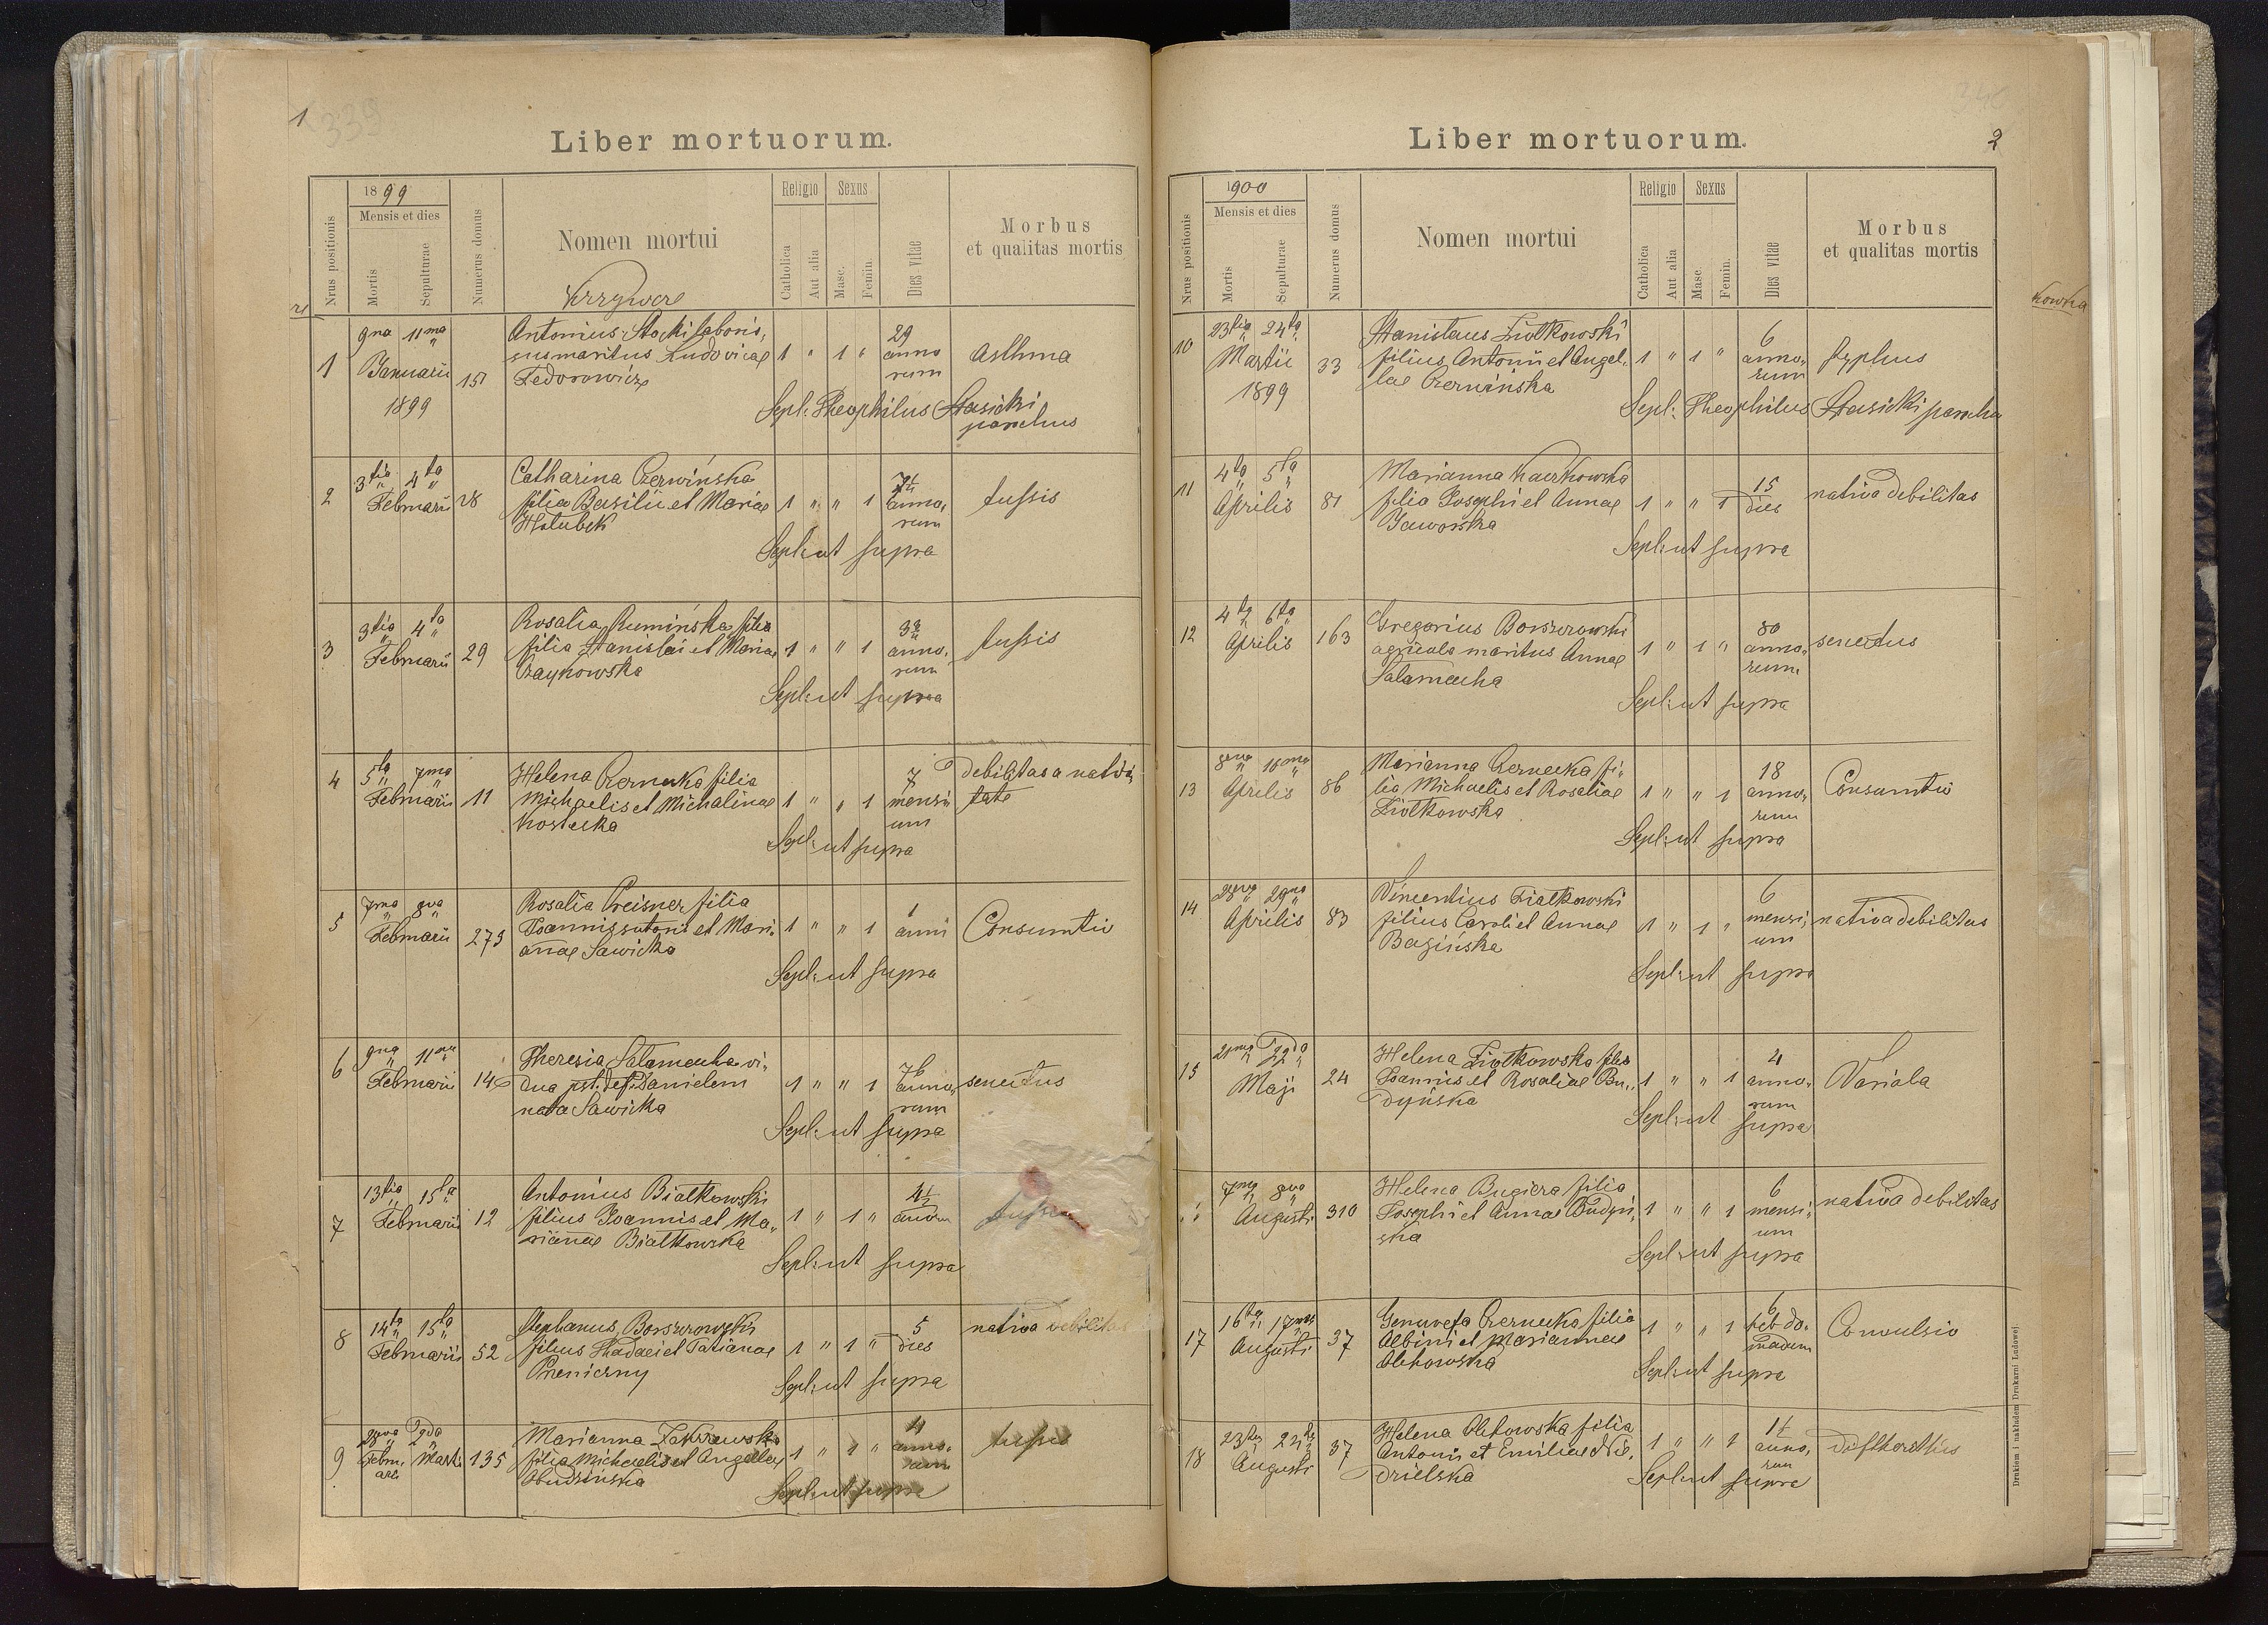 1
339
Liber mortuorum.
1899
Mensis et dies
Nrus positionis
Mortis
Sepulturae
Numerus domus
Nomen mortui
Religio
Sexus
Catholica
Aut alia
Masc.
Femin.
Dies vitae
Morbus
et qualitas mortis
1
9na 11ma
Januarii
1899
151
Antonius Stocki laborio-
sus maritus Ludovicae
Fedorowicz
1 " 1 "
29
anno
rum
Asthma
Sepl: Theophilus Stasicki
parochus
2
3tia 4ta
Februarii
28
Catharina Czerwińska
filia Basilii et Mariae
Holubek
1 " " 1
anno-
rum
tussis
Sepl: ut supra
3
3tia 4ta
Februarii
29
Rosalia Rumińska filia
filia Stanislai et Mariae
Czaykowska
1 " " 1
anno-
rum
tussis
Sepl: ut supra
4
5ta 7ma
Februarii
11
Helena Czernecka filia
Michaelis et Michalinae
Kostecka
1 " " 1
7
mensi
um
Debilitas a nativi
tate
Sepl: ut supra
5
7ma 8va
Februarii
273
Rosalia Preisner filia
Joannis sutoris et Mari-
annae Sawicka
1 " " 1
1
anni
Consumtio
Sepl: ut supra
6
9na 11ma
Februarii
146
Theresia Salamacha vi-
dua pst. def. Danielem
nata Sawicka
1 " " 1
76
anno-
rum
senectus
Sepl: ut supra
7
13tia 15ta
Februarii
12
Antonius Bialkowski
filius Joannis et Ma-
riannae Bialkowska
1 " 1 "
tussis
Sepl: ut supra
8
14ta 15ta
Februarii
52
Stephanus Borszowski
filius Thadaei et Tatianae
Pszeniczny
1 " 1 "
5
dies
nativa debilitas
Sepl: ut supra
9
28va 2da
Febru- Martii
arii
135
Marianna Zakrzewska
filia Michaelis et Angellae
1 " 1 "
4
anno-
rum
tussis
Sepl: ut supra
Liber mortuorum.
2
1900
Mensis et dies
Nrus positionis
Mortis
Sepulturae
Numerus domus
Nomen mortui
Religio
Sexus
Catholica
Aut alia
Masc.
Femin.
Dies vitae
Morbus
et qualitas mortis
10
23tia 24ta
Martii
1899
33
Stanislaus Ziolkowski
filius Antonii et Angel-
lae Czerwińska
1 " 1 "
6
anno-
rum
typhus
Sepl: Theophilus Stasicki parochus
11
4ta 5ta
Aprilis
81
Marianna Kaczkowska
filia Josephi et Annae
Jaworska
1 " " 1
15
dies
nativa debilitas
Sepl: ut supra
12
4ta 6ta
Aprilis
163
Gregorius Borszowski
agricola maritus Annae
Salamacha
1 " 1 "
80
anno-
rum
senectus
Sepl: ut supra
13
Aprilis
86
Marianna Czernecka fi-
lia Michaelis et Rosaliae
Ziolkowska
1 " " 1
18
anno-
rum
Consumtio
Sepl: ut supra
14
28va 29na
Aprilis
83
Vincentius Fialkowski
filius Caroli et Annae
Bagińska
1 " 1 "
6
mensi-
um
nativa debilitas
Sepl: ut supra
15
21ma 22da
Maji
24
Helena Ziolkowska filia
Joannis et Rosaliae Bu-
dyńska
1 " " 1
4
anno-
rum
Variola
Sepl: ut supra
7ma 8va
Augusti
310
Helena Bugiera filia
Josephi et Annae Budyń-
ska
1 " " 1
6
mensi-
um
nativa debilitas
Sepl: ut supra
17
16ta 17ma
Augusti
37
Genovefa Czernecka filia
Albini et Mariannae
Olchowska
1 " " 1
6
hebdo-
madum
Convulsio
Sepl: ut supra
18
Augusti
37
Helena Olchowska filia
Antonii et Emiliae Nie-
dzielska
1 " " 1
anno-
rum
Sepl: ut supra
Drukiem i nakładem Drukarni Ludowej.
kowka